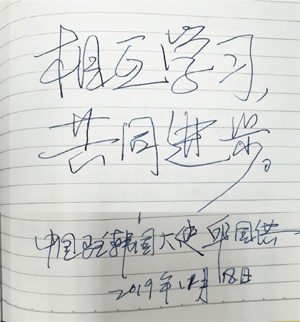 相互学习，
共同进步。
中国驻韩国大使 邱国洪
2019年12月18日